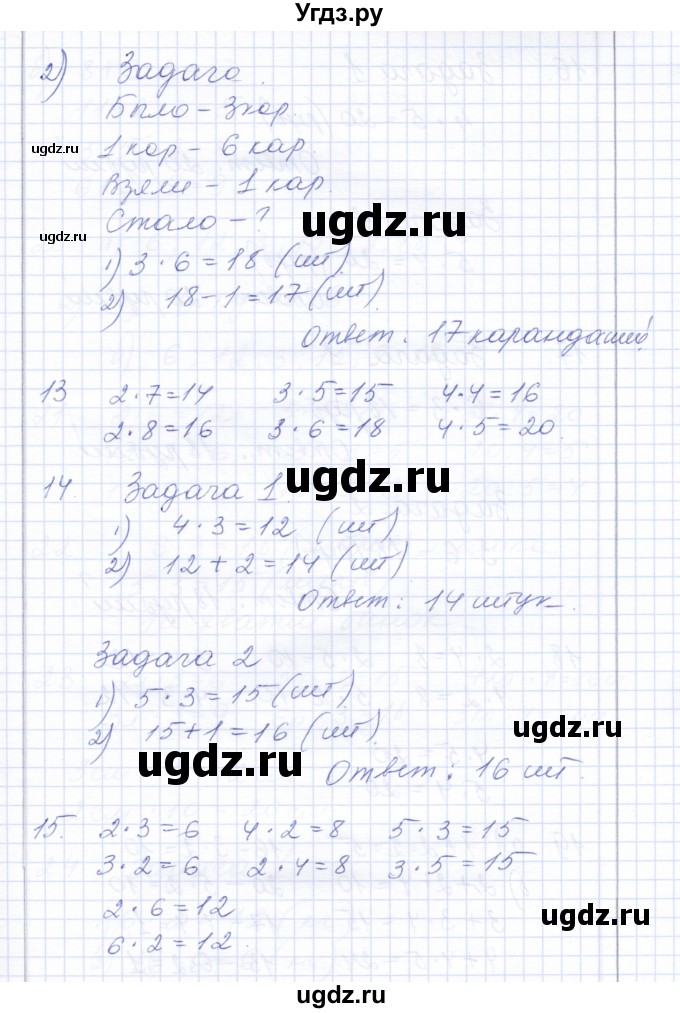 Угдз.ру
2) Задача.
Было – 3 кор
ugdz.ru
1 кор – 6 кар.
Взяли – 1 кар.
Стало – ?
ugdz.ru
ugdz.ru
1) 3 · 6 = 18 (шт)
2) 18 – 1 = 17 (шт).
Ответ: 17 карандашей
13 2 · 7 = 14 3 · 5 = 15 4 · 4 = 16
2 · 8 = 16 3 · 6 = 18 4 · 5 = 20.
14. Задача 1.
ugdz.ru
1) 4 · 3 = 12 (шт)
2) 12 + 2 = 14 (шт)
Ответ: 14 штук.
Задача 2
1) 5 · 3 = 15 (шт)
2) 15 + 1 = 16 (шт).
ugdz.ru
ugdz.ru
Ответ: 16 шт.
15. 2 · 3 = 6 4 · 2 = 8 5 · 3 = 15
3 · 2 = 6 2 · 4 = 8 3 · 5 = 15
2 · 6 = 12
ugdz.ru
6 · 2 = 12.
ugdz.ru